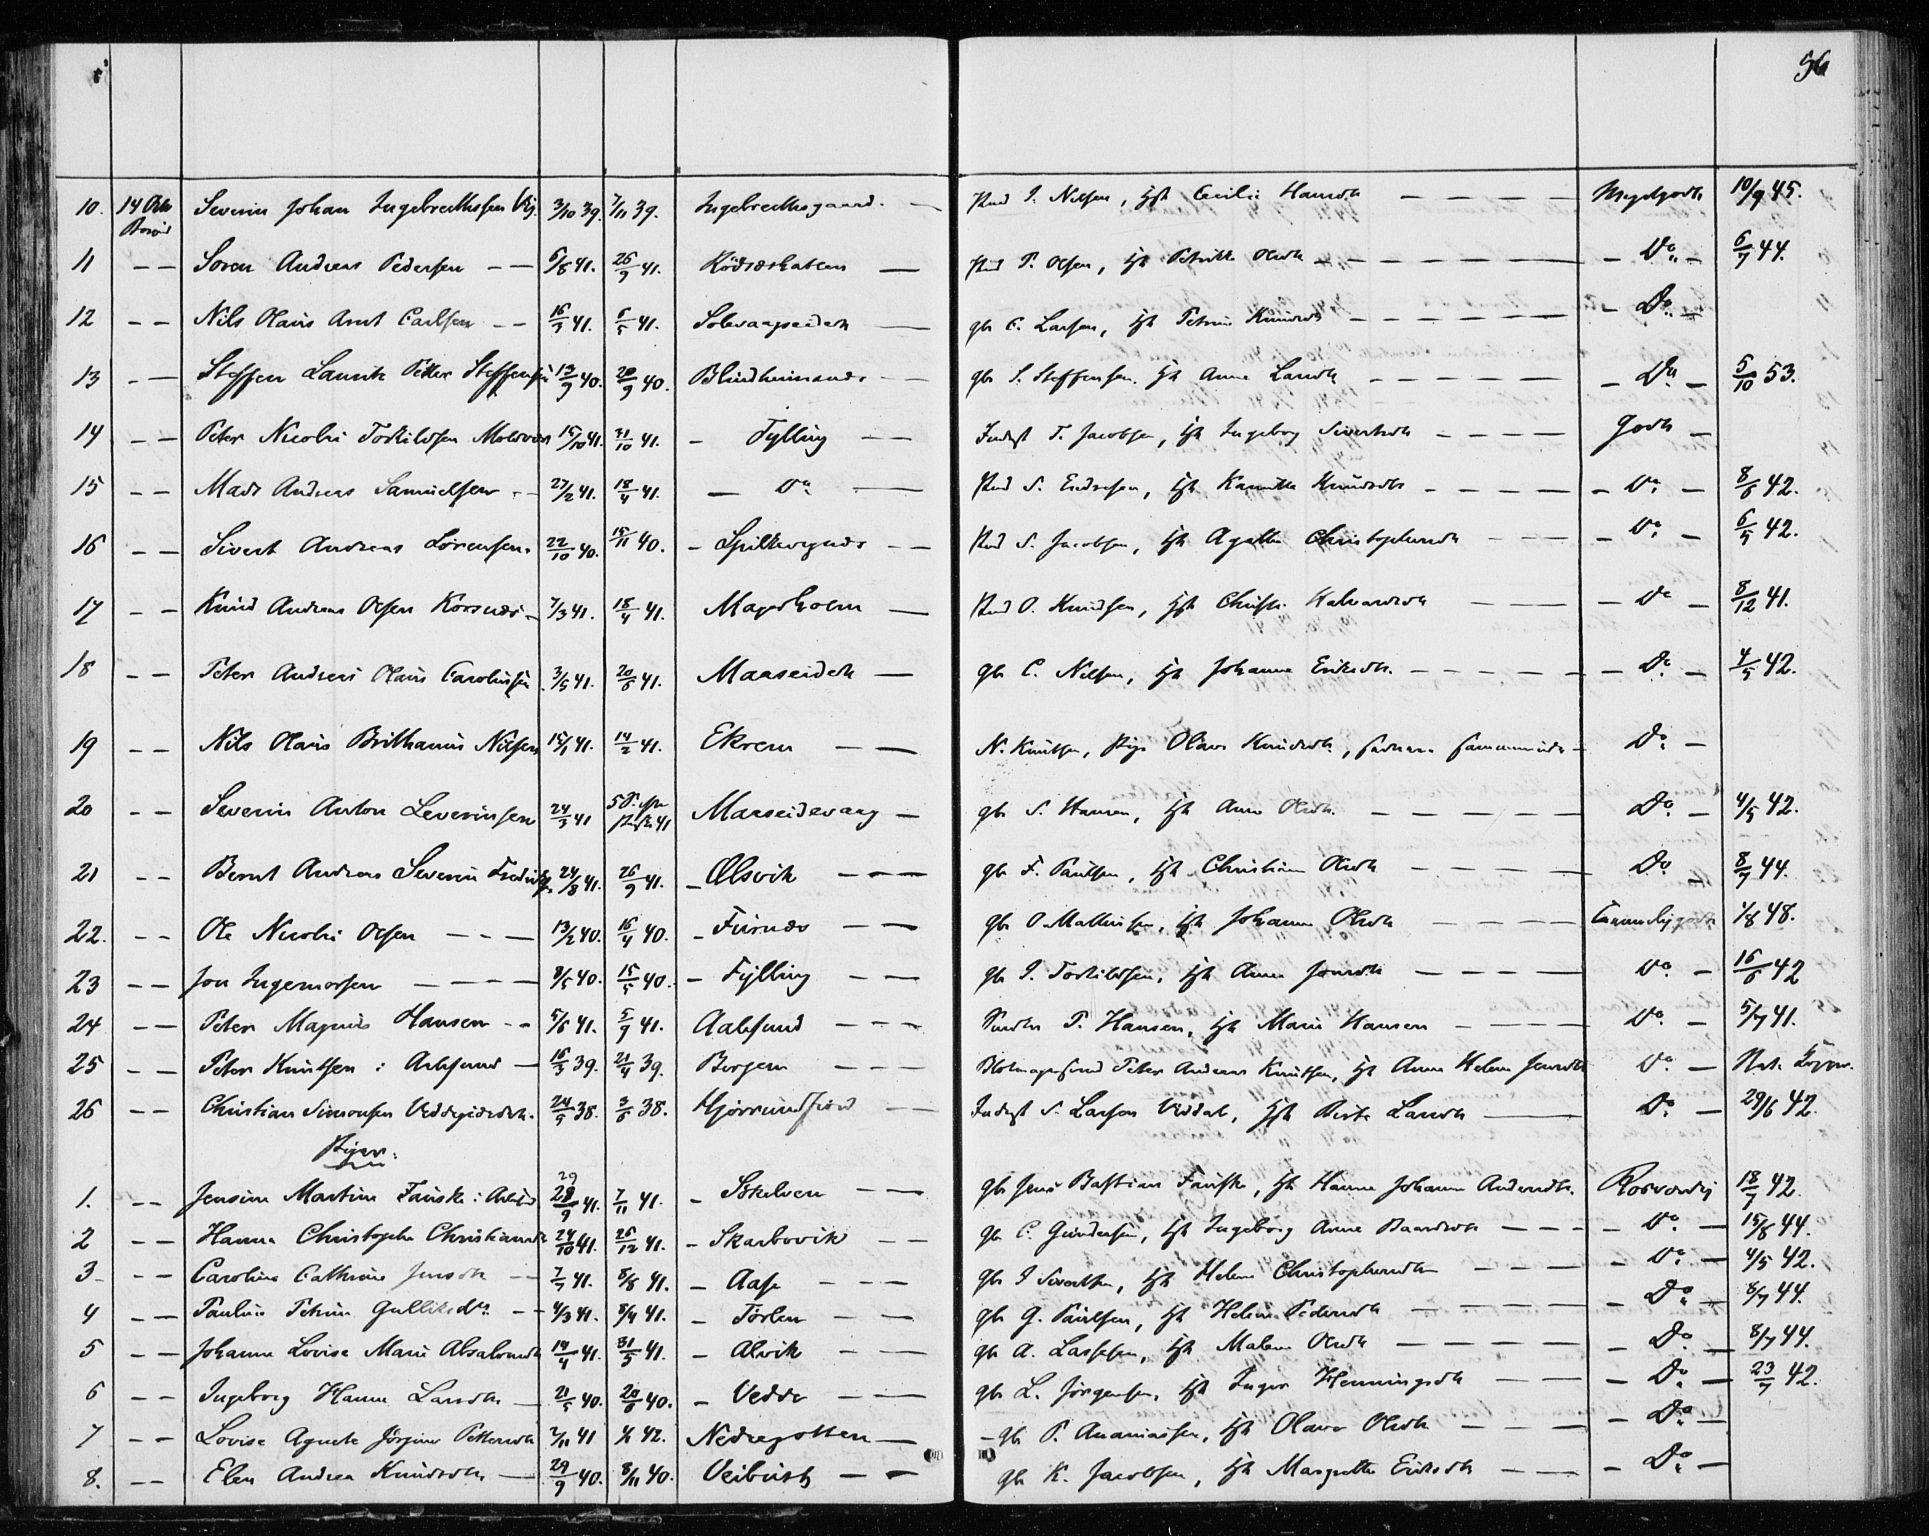 96
10. 14 Octr Severin Johan Ingebrecthssen 3/10 39. 7/11 39. Ingebrecthsgaard. — J. Nilsen, Hst Cecilie Hansdtr — — — — Megetgodt 10/9 45.
11 — — Soren Andreas Pedersen — — 6/8 41. 26/9 41. — P. Olsen, Hst Petrikke Olsdtr — — — — Do — 6/7 44.
12 — — Nils Olaus Arnt Carlsen — — 16/3 41. 41. Solevaagseidet — gbr C. Larsen, Hst Petrine Knudsdtr — — — — Do —
13 — — Steffen Laurits Petter Steffensen 13/9 40. 20/9 40. Blindheimsnes — gbr S. Steffensen. Hst Anne Larsdtr — — — — Do — 5/10 53.
14 — — Peter Nicolai Torkildsen 15/10 41. 31/10 41. — Fylling — — Inderst T. Jacobsen, Hst Ingeborg Sivertsdtr — — — — Godt —
15 — — Mads Andreas Samuelsen — 27/2 41. 18/4 41. — Do — S. Endresen, Hst Knudsdtr — — — — Do — 8/6 42.
16 — — Sivert Andreas Lorensen. 22/10 40. 15/11 40. — Spilkevignes — — S. Jacobsen, Hst Agathe Christophersdtr — — — Do — 6/5 42.
17 — — Knud Andreas Olsen Korsnes — 7/3 41. 18/4 41. Magerholm — O. Knudsen, Hst Christi Halvardsdtr — — — Do — 8/12 41.
18 — — Peter Andreas Olaus Carolussen 3/5 41. 20/6 41. Maaseidet — gbr C. Nilsen, Hst Johanne Eriksdtr. — — — — Do — 4/5 42.
19 — — Nils Olaus Brithanius Nilsen 15/1 41. 14/2 41. Ekrem — — N. Knutsen, Pige Olave Knudsdtr, — Do —
20 — — Severin Anton Severinsen 24/3 41 Maaseidevaag — gbr S. Hansen, Hst Anne Olsdtr. — — — — Do — 4/5 42.
21 — — Bernt Andreas Severin 24/8 41. 26/9 41. — Ølsvik — — gbr F. Paulsen, Hst Christiane Olsdtr — — — — Do — 8/7 44.
22. — — Ole Nicolai Olsen — — — 13/2 40. 16/4 40. — Furnes — — gbr O. Mathiassen, Hst Johanne Olsdtr — — — — Temmeliggodt 1/8 48.
23 — — Jon Ingemorsen — — — — 8/5 40. 15/5 40. — Fylling — — gbr I. Torkildsen, Hst Anne Jonsdtr — — — — Do — 16/6 42
24 — — Peter Magnus Hansen — — 5/6 41. 5/9 41. Aalesund — — — P. Hansen, Hst Marie Hansen — — — — Do — 5/7 41.
25 — — Peter Knutsen : Aalesund — 16/3 39. 21/4 39. Bergen — — — Peter Andreas Knutsen, Hst Anne Helene Jensdtr Do — Nat. Kopper.
26 — — Christian Simonsen 24/5 38. 3/6 38. Hjørrundfiord — — Inderst S. Larsen Viddal, Hst Berte Larsdtr — — Do — 29/6 42.
Piger.
1. — — Jensine Martine Fauske : 29 28/9 41. 7/11 41. — Søkelven — — gbr Jens Bastian Fauske, Hst Hanne Johanne Andersdtr. Roesværdig 18/7 42.
2 — — Hanna Christophe Christiansdtr 24/10 41. 26/12 41. — Skarbøvik — — gbr C. Gundersen, Hst Ingeborg Anne Baardsdtr — — — Do — 15/8 44.
3 — — Caroline Cathrine Jensdtr — — 7/7 41. 8/8 41. — Aase — — — gbr J. Sivertsen, Hst Helene Christophersdtr — — — — Do — 4/5 42.
4 — — Pauline Petrine Gulliksdtr. — — 4/3 41. 8/4 41. — Tørlen — — gbr G. Paulsen, Hst Helene Pedersdtr — — — — Do — 8/7 44.
5 — — Johanne Lovise Marie Absalonsdtr 14/4 41. 31/5 41. — Alvik — — gbr A. Lassesen, Hst Malene Olsdtr — — — — Do — 8/7 44.
6 — — Ingeborg Hanne Larsdtr — 21/5 40. 20/6 40. — Vedde — — gbr L. Jørgensen, Hst Inger Henningsdtr — — — — Do — 23/7 42.
7 — — Lovise Agnete Jørgine Pettersdtr 2/11 41 42. Nedregotten — — gbr P. Ananiassen, Hst Olave Olsdtr — — — Do —
8. — — Elen Andrea Knudsdtr — 29/9 40. 8/11 40. Veibust — — gbr K. Jacobsen, Hst Margrethe Eriksdtr — — — Do —